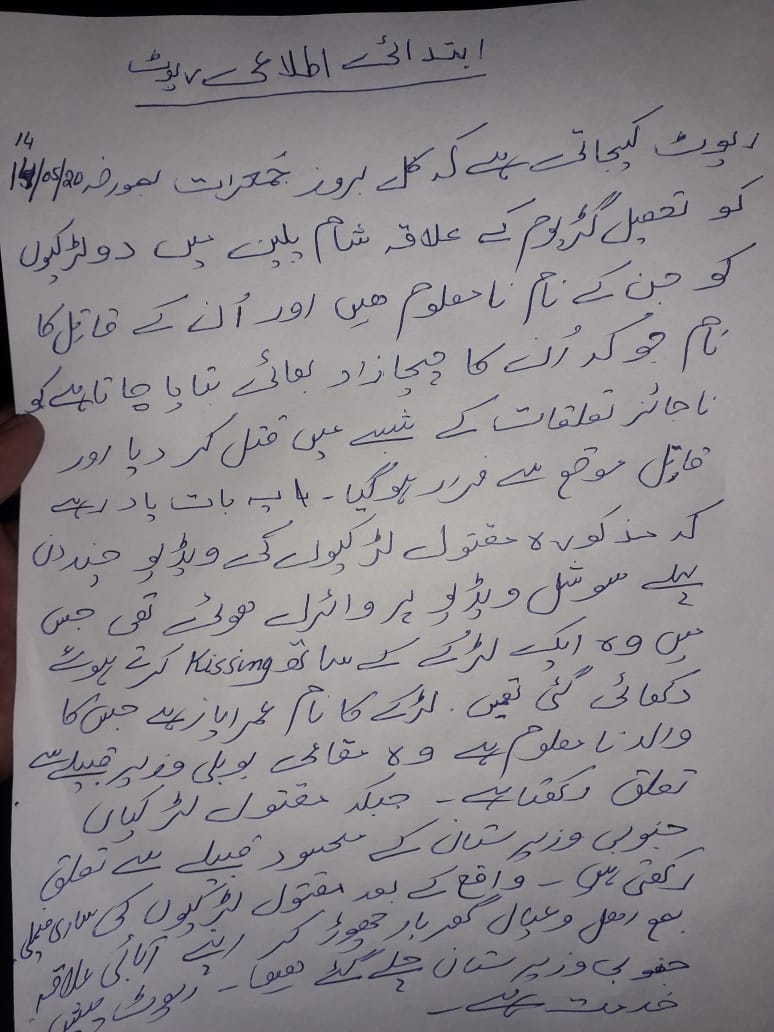 ابتدائے اطلاعی رپوٹ
رپوٹ کیجاتی ہے کہ کل بروز جمعرات بمورخہ 14/05/20
کو تحصیل گڑیوم کے علاقہ شام پلین میں دو لڑکیوں
کو جن کے نام نامعلوم ھیں اور اُن کے قاتل کا
نام جو کہ اُن کا چچازاد بھائے بتایا جاتا ہے کو
ناجائز تعلقات کے شبے میں قتل کر دیا اور
قاتل موقع سے فرار ہو گیا۔ یہ بات یاد رہے
کہ مذکورہ مقتول لڑکیوں کی ویڈیو چند دن
پہلے سوشل ویڈیو پر وائرل ھوئے تھی جس
میں وہ ایک لڑکے کے ساتھ Kissing کرتے ہوئے
دکھائی گئی تھیں۔ لڑکے کا نام عمر ایاز ہے جس کا
والد نامعلوم ہے وہ مقامی بوبلی وزیر قبیلے سے
تعلق رکھتا ہے۔ جبکہ مقتول لڑکیاں
جنوبی وزیرستان کے محسود قبیلے سے تعلق
رکھتی ہیں۔ واقع کے بعد مقتول لڑکیوں کی ساری فیملی
بمع اہل وعیال گھر بار چھوڑ کر اپنے آبائی علاقہ
جنوبی وزیرستان چلے گئے ھیں۔ رپوٹ پیش
خدمت ہے۔